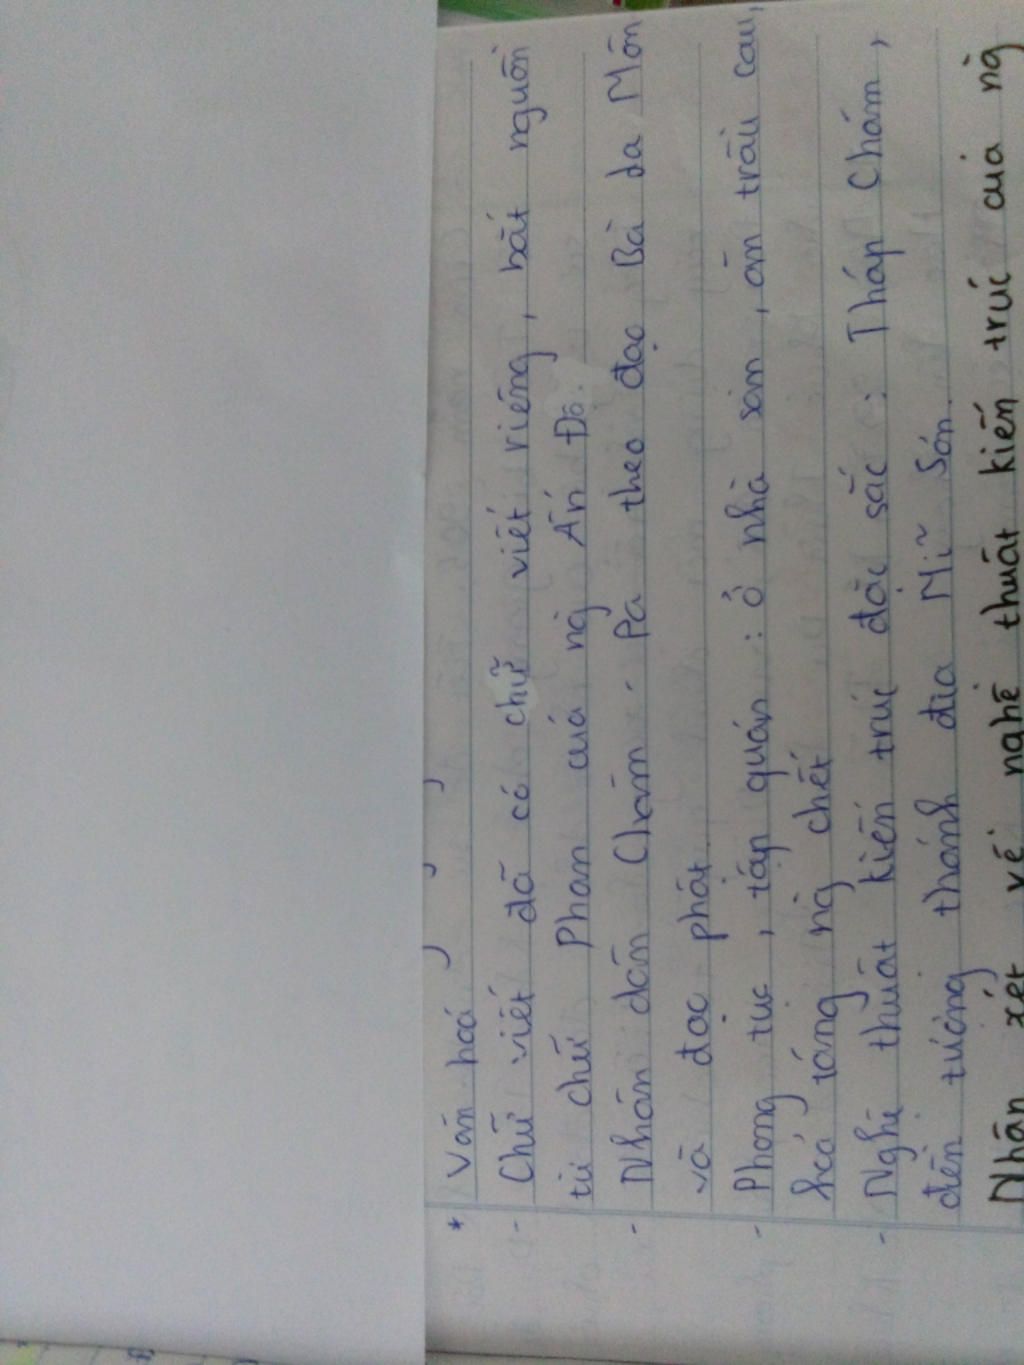 * Văn hoá
- Chữ viết đã có chữ viết riêng, bắt nguồn
từ chữ Phạn của ng Ấn Độ.
- Nhân dân Chăm-Pa theo đạo Bà La Môn
và đạo phật.
- Phong tục, tập quán: ở nhà sàn, ăn trầu cau,
hoả táng ng chết
- Nghệ thuật kiến trúc đặc sắc: Tháp Chăm,
đền, tượng thánh địa Mĩ Sơn.
Nhận xét về nghệ thuật kiến trúc của ng